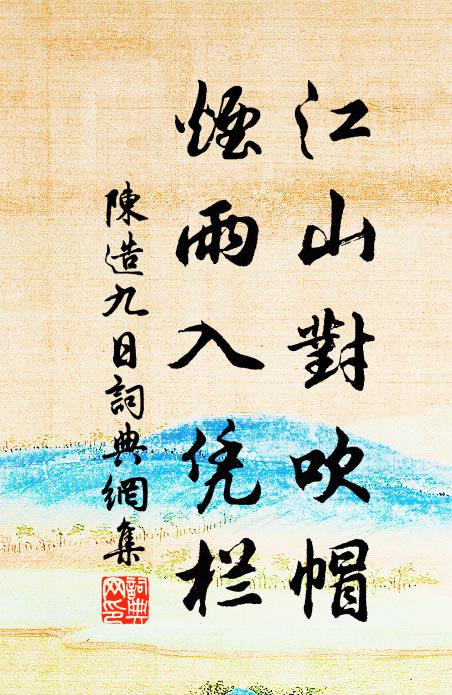 江山對吹帽
煙雨入凭栏
陳造九日詞典網集
詞典